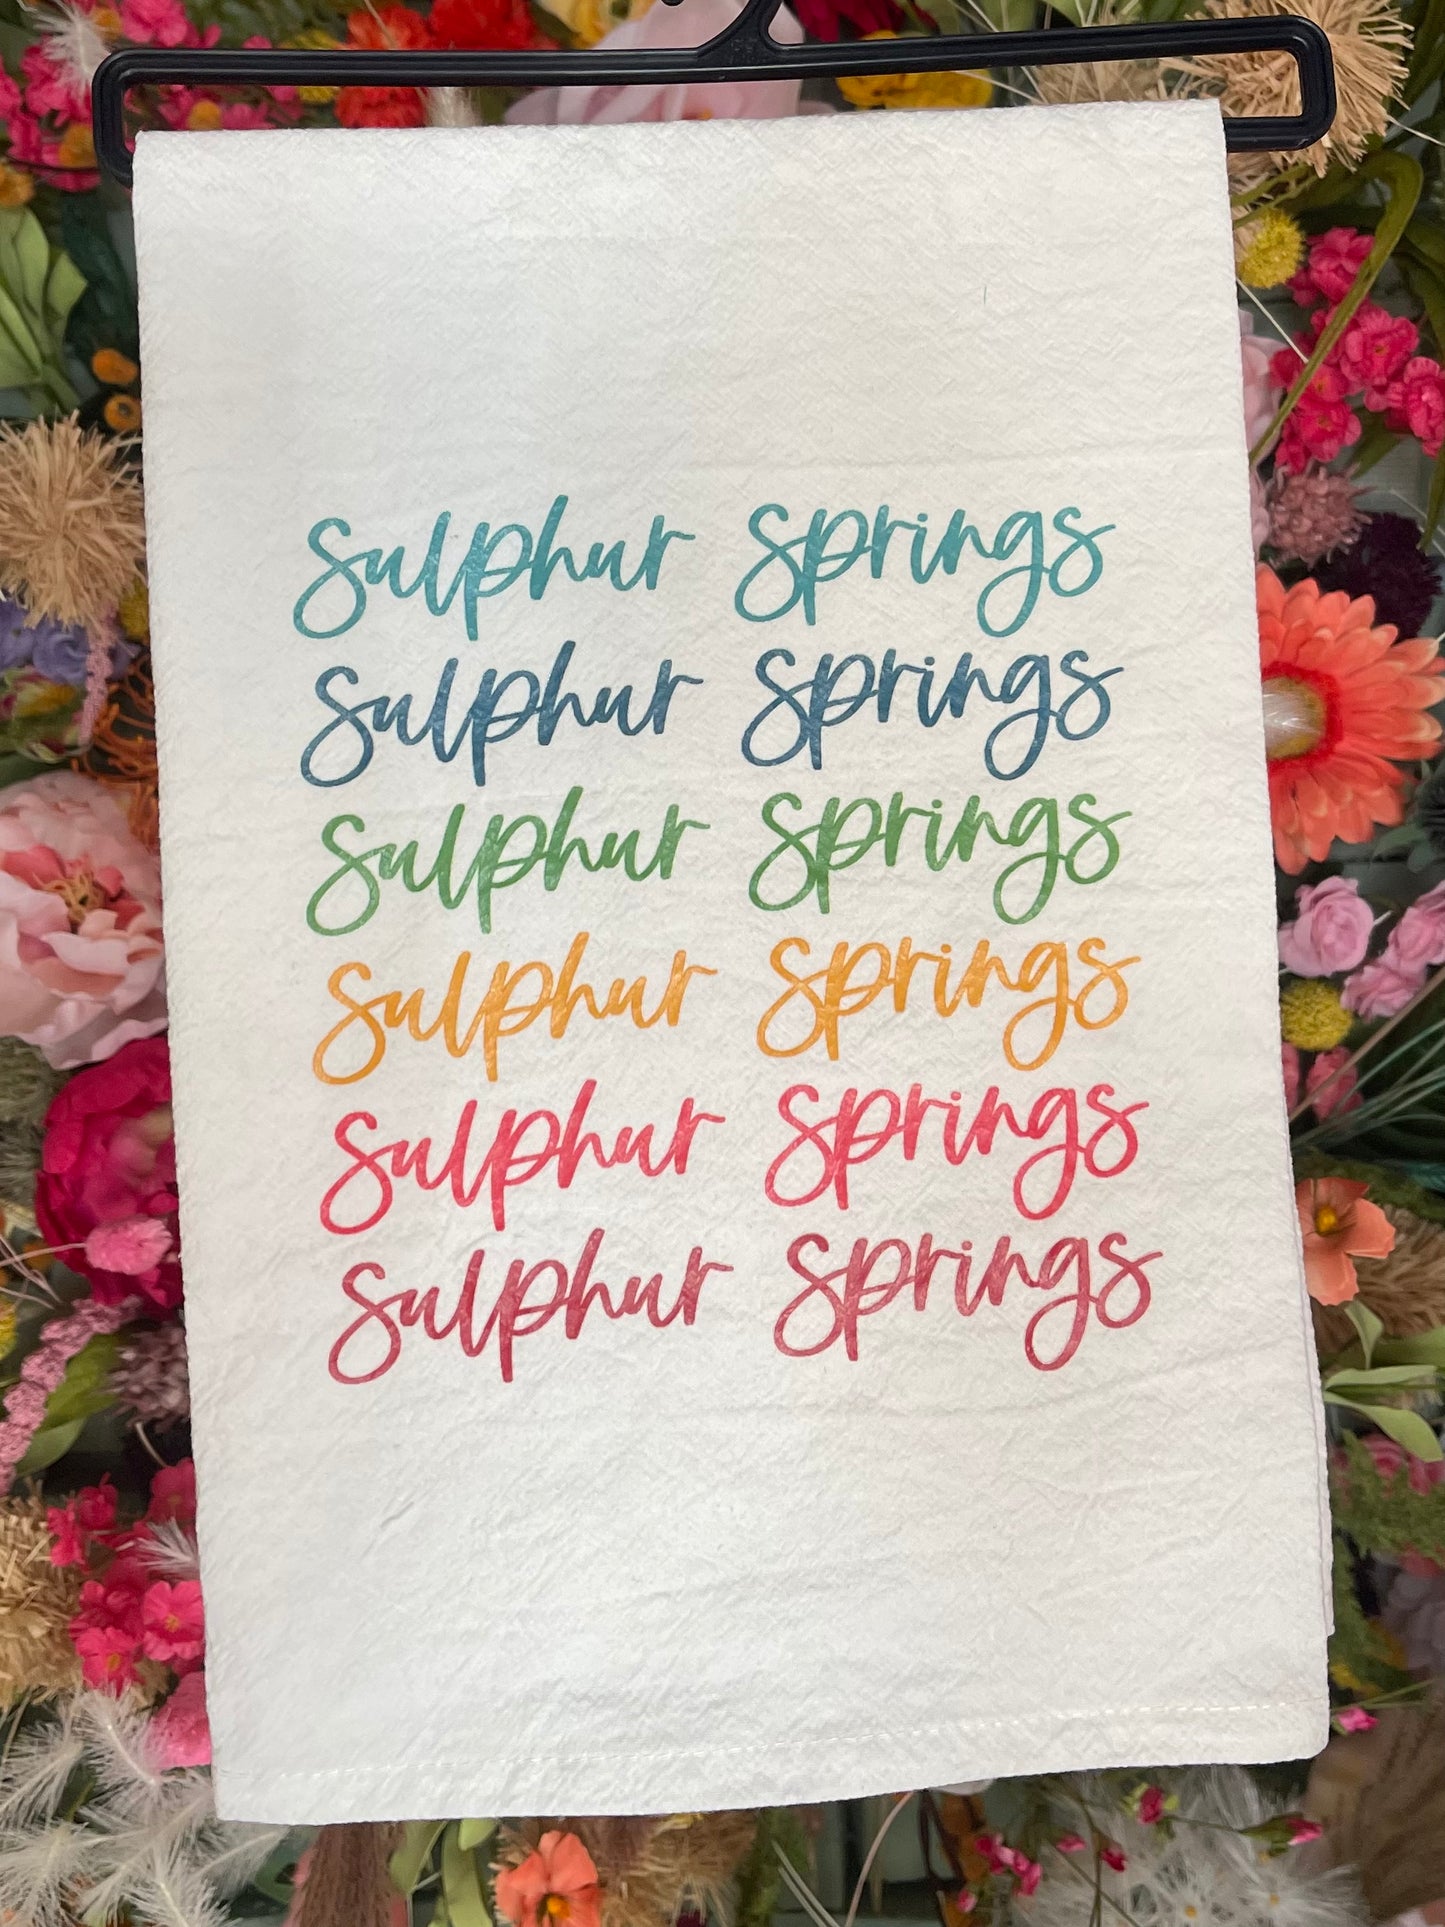 Sulphur Springs
Sulphur Springs
Sulphur Springs
Sulphur Springs
Sulphur Springs
Sulphur Springs